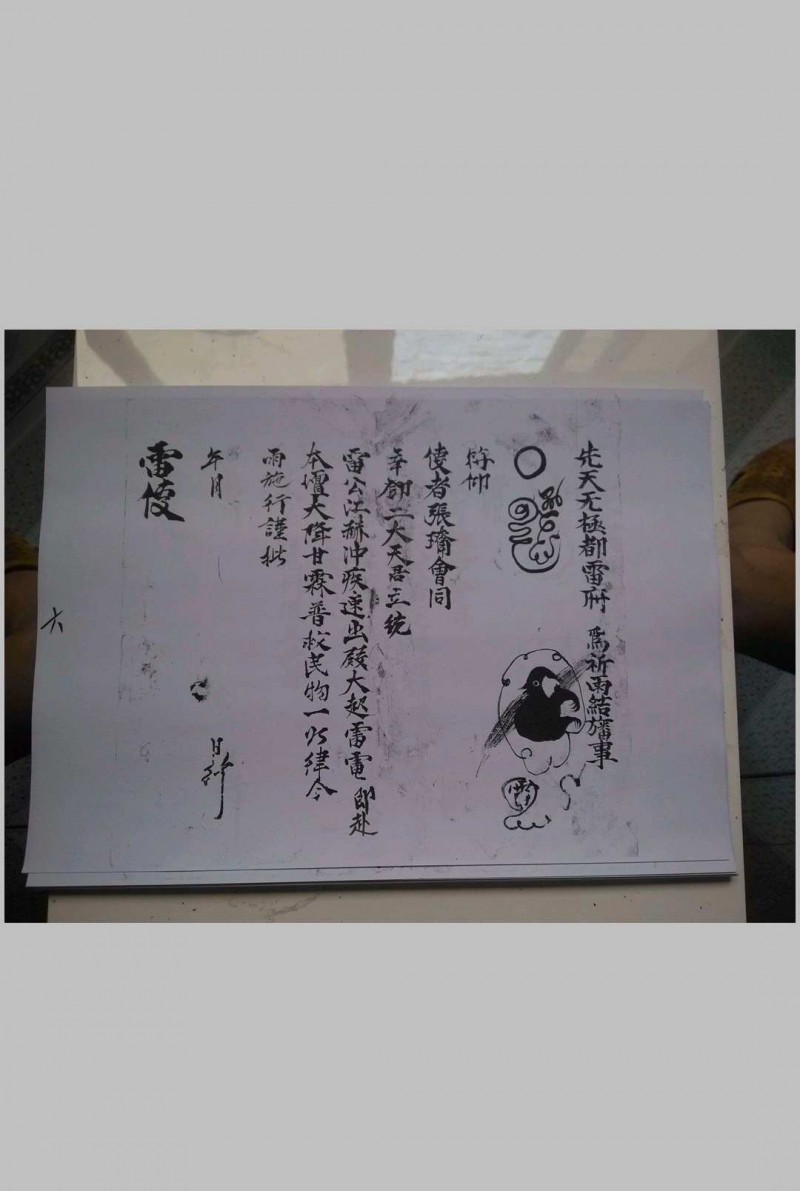 先天无極都雷府 為祈雨結旛事
符仰
使者張𤩽會同
辛鄧二大天君立統
雷公江赫冲疾速出殿大起雷電即赴
本壇大降甘霖普救民物一如律令
雨施行謹批
年月 日行
雷使
六